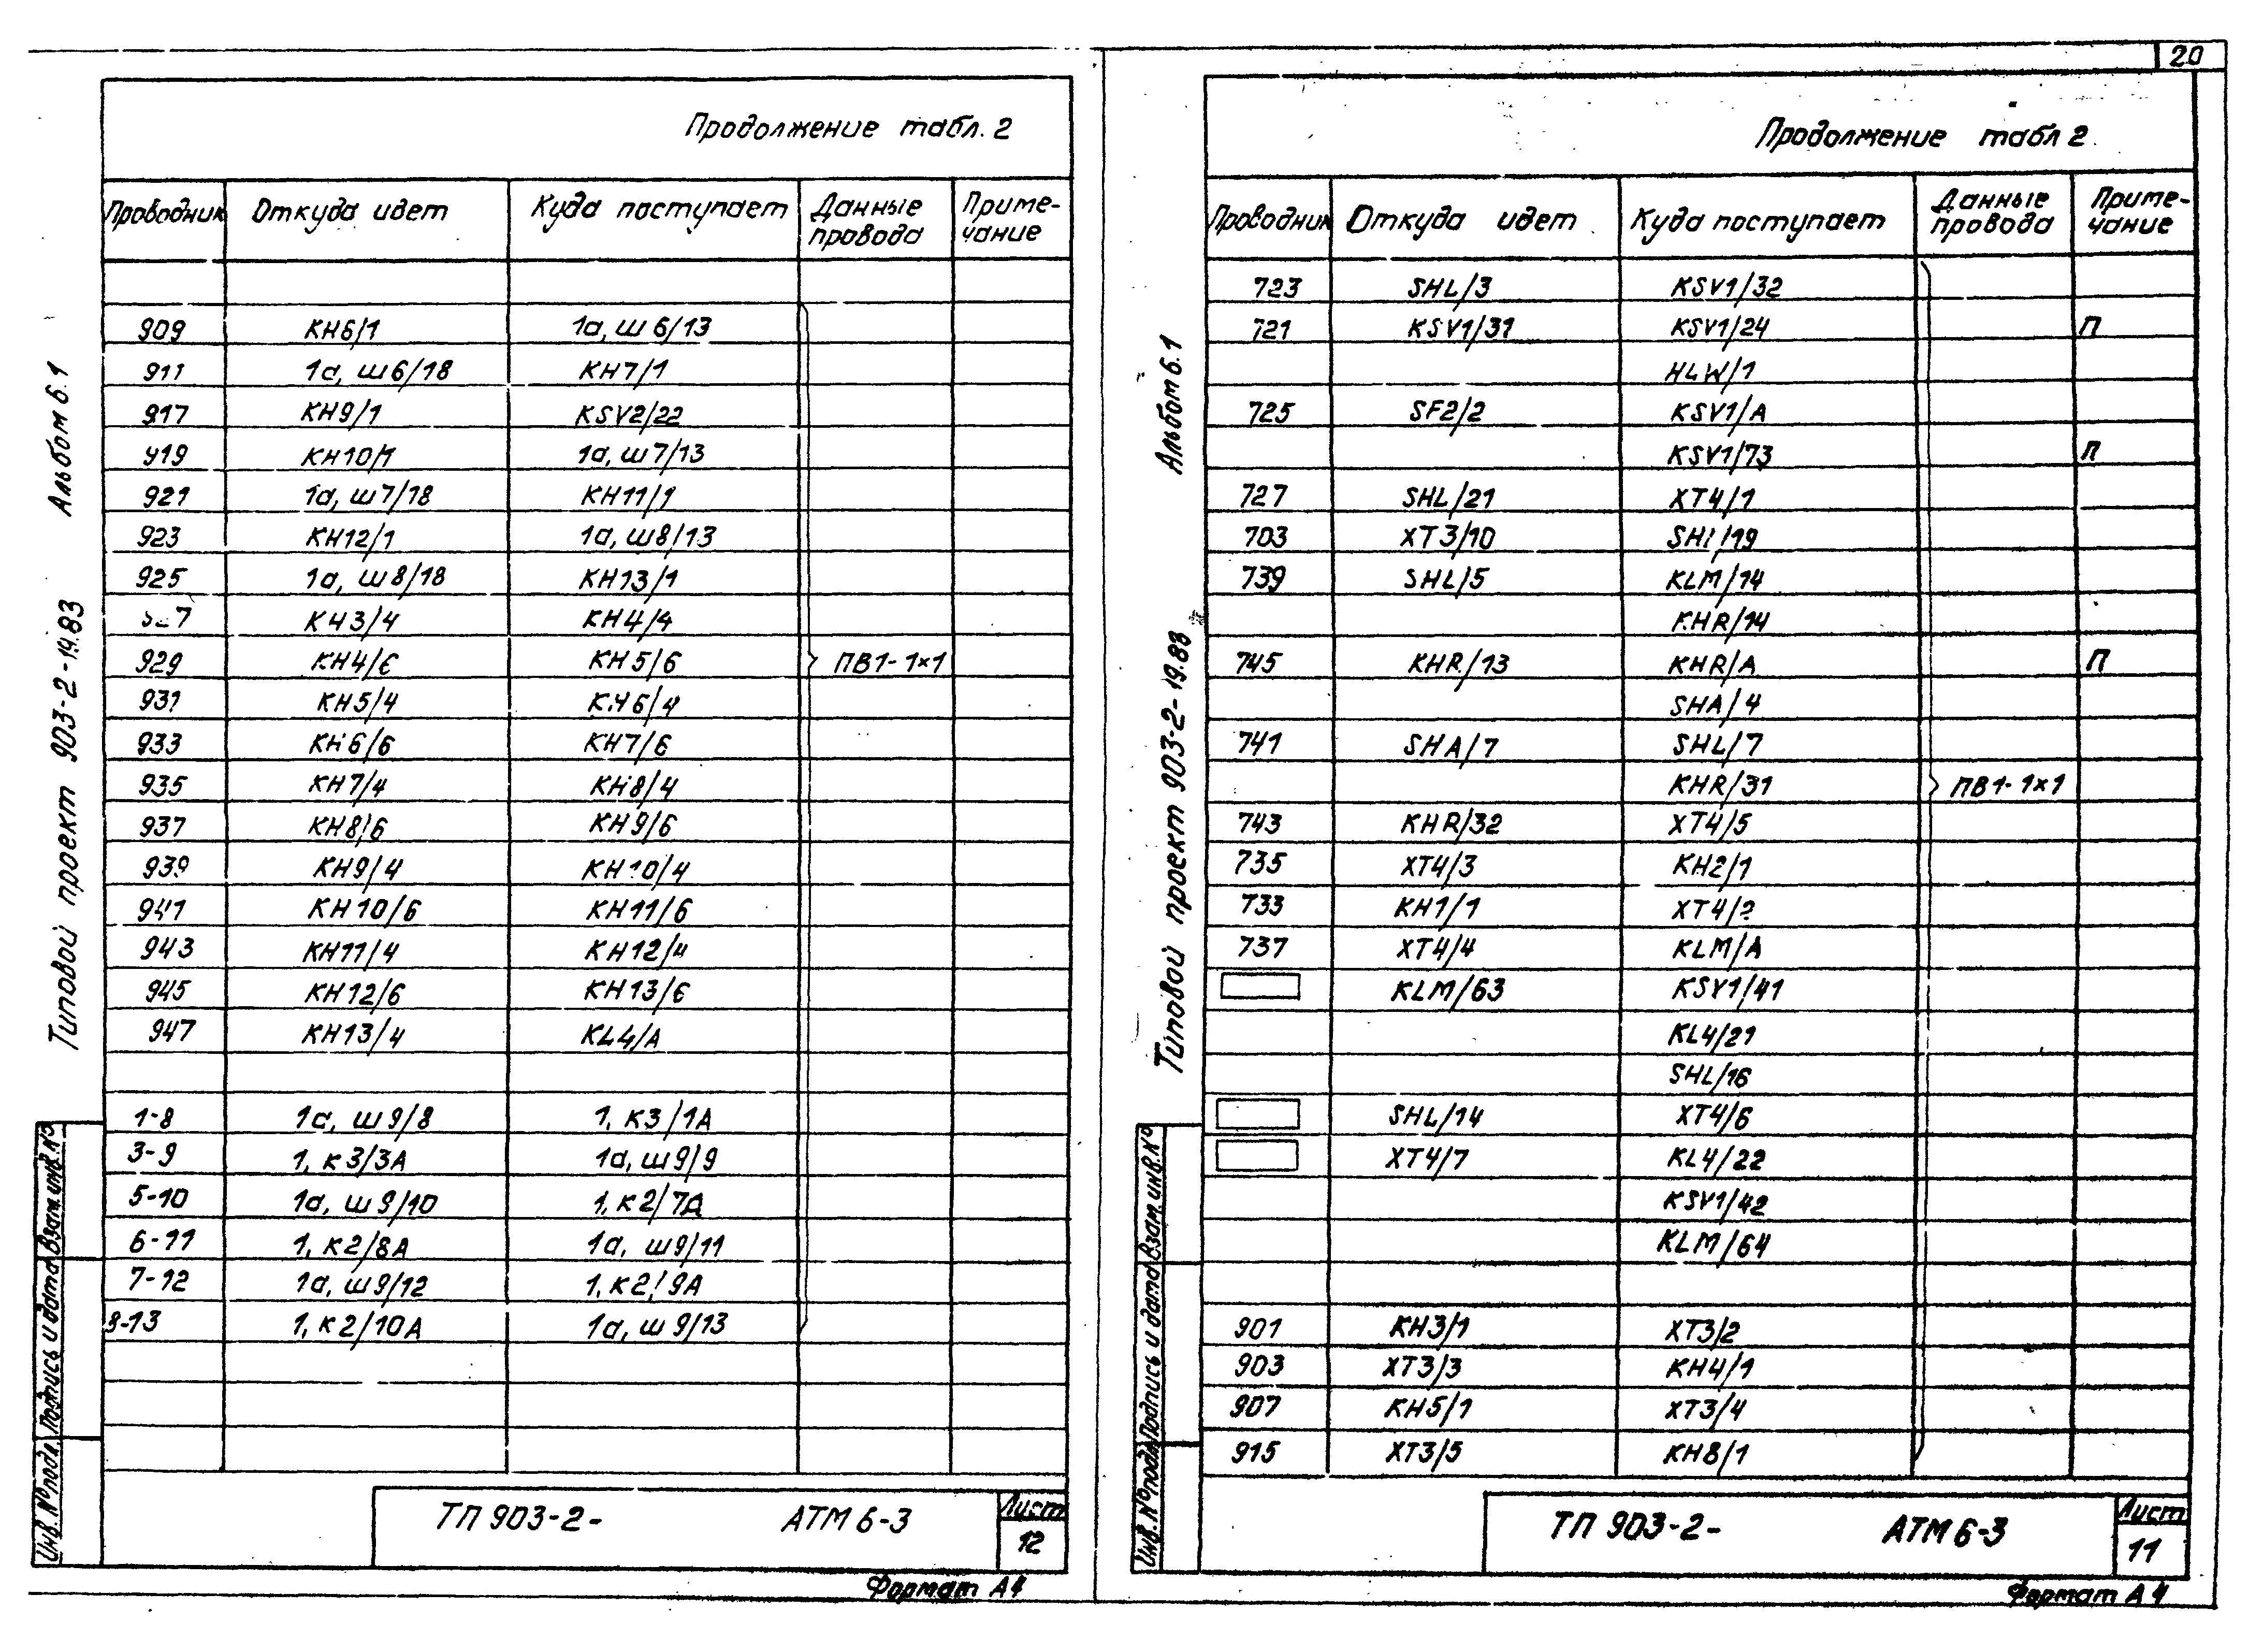 20
Продолжение табл. 2
Проводник Откуда идет Куда поступает Данные провода Приме-чание
909 КН6/1 1а, ш6/13
911 1а, ш6/18 КН7/1
917 КН9/1 KSV2/22
919 КН10/1 1а, ш7/13
921 1а, ш7/18 КН11/1
923 КН12/1 1а, ш8/13
925 1а, ш8/18 КН13/1
КН3/4 КН4/4
929 КН4/6 КН5/6 ПВ1-1×1
931 КН5/4 КН6/4
933 КН6/6 КН7/6
935 КН7/4 КН8/4
937 КН8/6 КН9/6
939 КН9/4 КН10/4
941 КН10/6 КН11/6
943 КН11/4 КН12/4
945 КН12/6 КН13/6
947 КН13/4 KL4/A
1-8 1а, ш9/8 1, К3/1А
3-9 1, К3/3А 1а, ш9/9
5-10 1а, ш9/10 1, К2/7А
6-11 1, К2/8А 1а, ш9/11
7-12 1а, ш9/12 1, К2/9А
8-13 1, К2/10А 1а, ш9/13
ТП 903-2- АТМ 6-3
Лист
12
Формат А4
Альбом 6.1
Типовой проект 903-2-19.83
Взам. инв. №
Подпись и дата
Инв. № подл.
Продолжение табл 2
Проводник Откуда идет Куда поступает Данные провода Приме-чание
723 SHL/3 KSV1/32
721 KSV1/31 KSV1/24 П
HLW/1
725 SF2/2 KSV1/A
KSV1/73 П
727 SHL/21 XT4/1
703 XT3/10 SHL/19
739 SHL/5 KLM/14
KHR/14
745 KHR/13 KHR/A П
SHA/4
741 SHA/7 SHL/7
KHR/31 ПВ1-1×1
743 KHR/32 XT4/5
735 XT4/3 KH2/1
733 KH1/1 XT4/2
737 XT4/4 KLM/A
KLM/63 KSV1/41
KL4/21
SHL/16
SHL/14 XT4/6
XT4/7 KL4/22
KSV1/42
KLM/64
901 KH3/1 XT3/2
903 XT3/3 KH4/1
907 KH5/1 XT3/4
915 XT3/5 KH8/1
ТП 903-2- АТМ 6-3
Лист
11
Формат А4
Альбом 6.1
Типовой проект 903-2-19.88
Взам. инв. №
Подпись и дата
Инв. № подл.